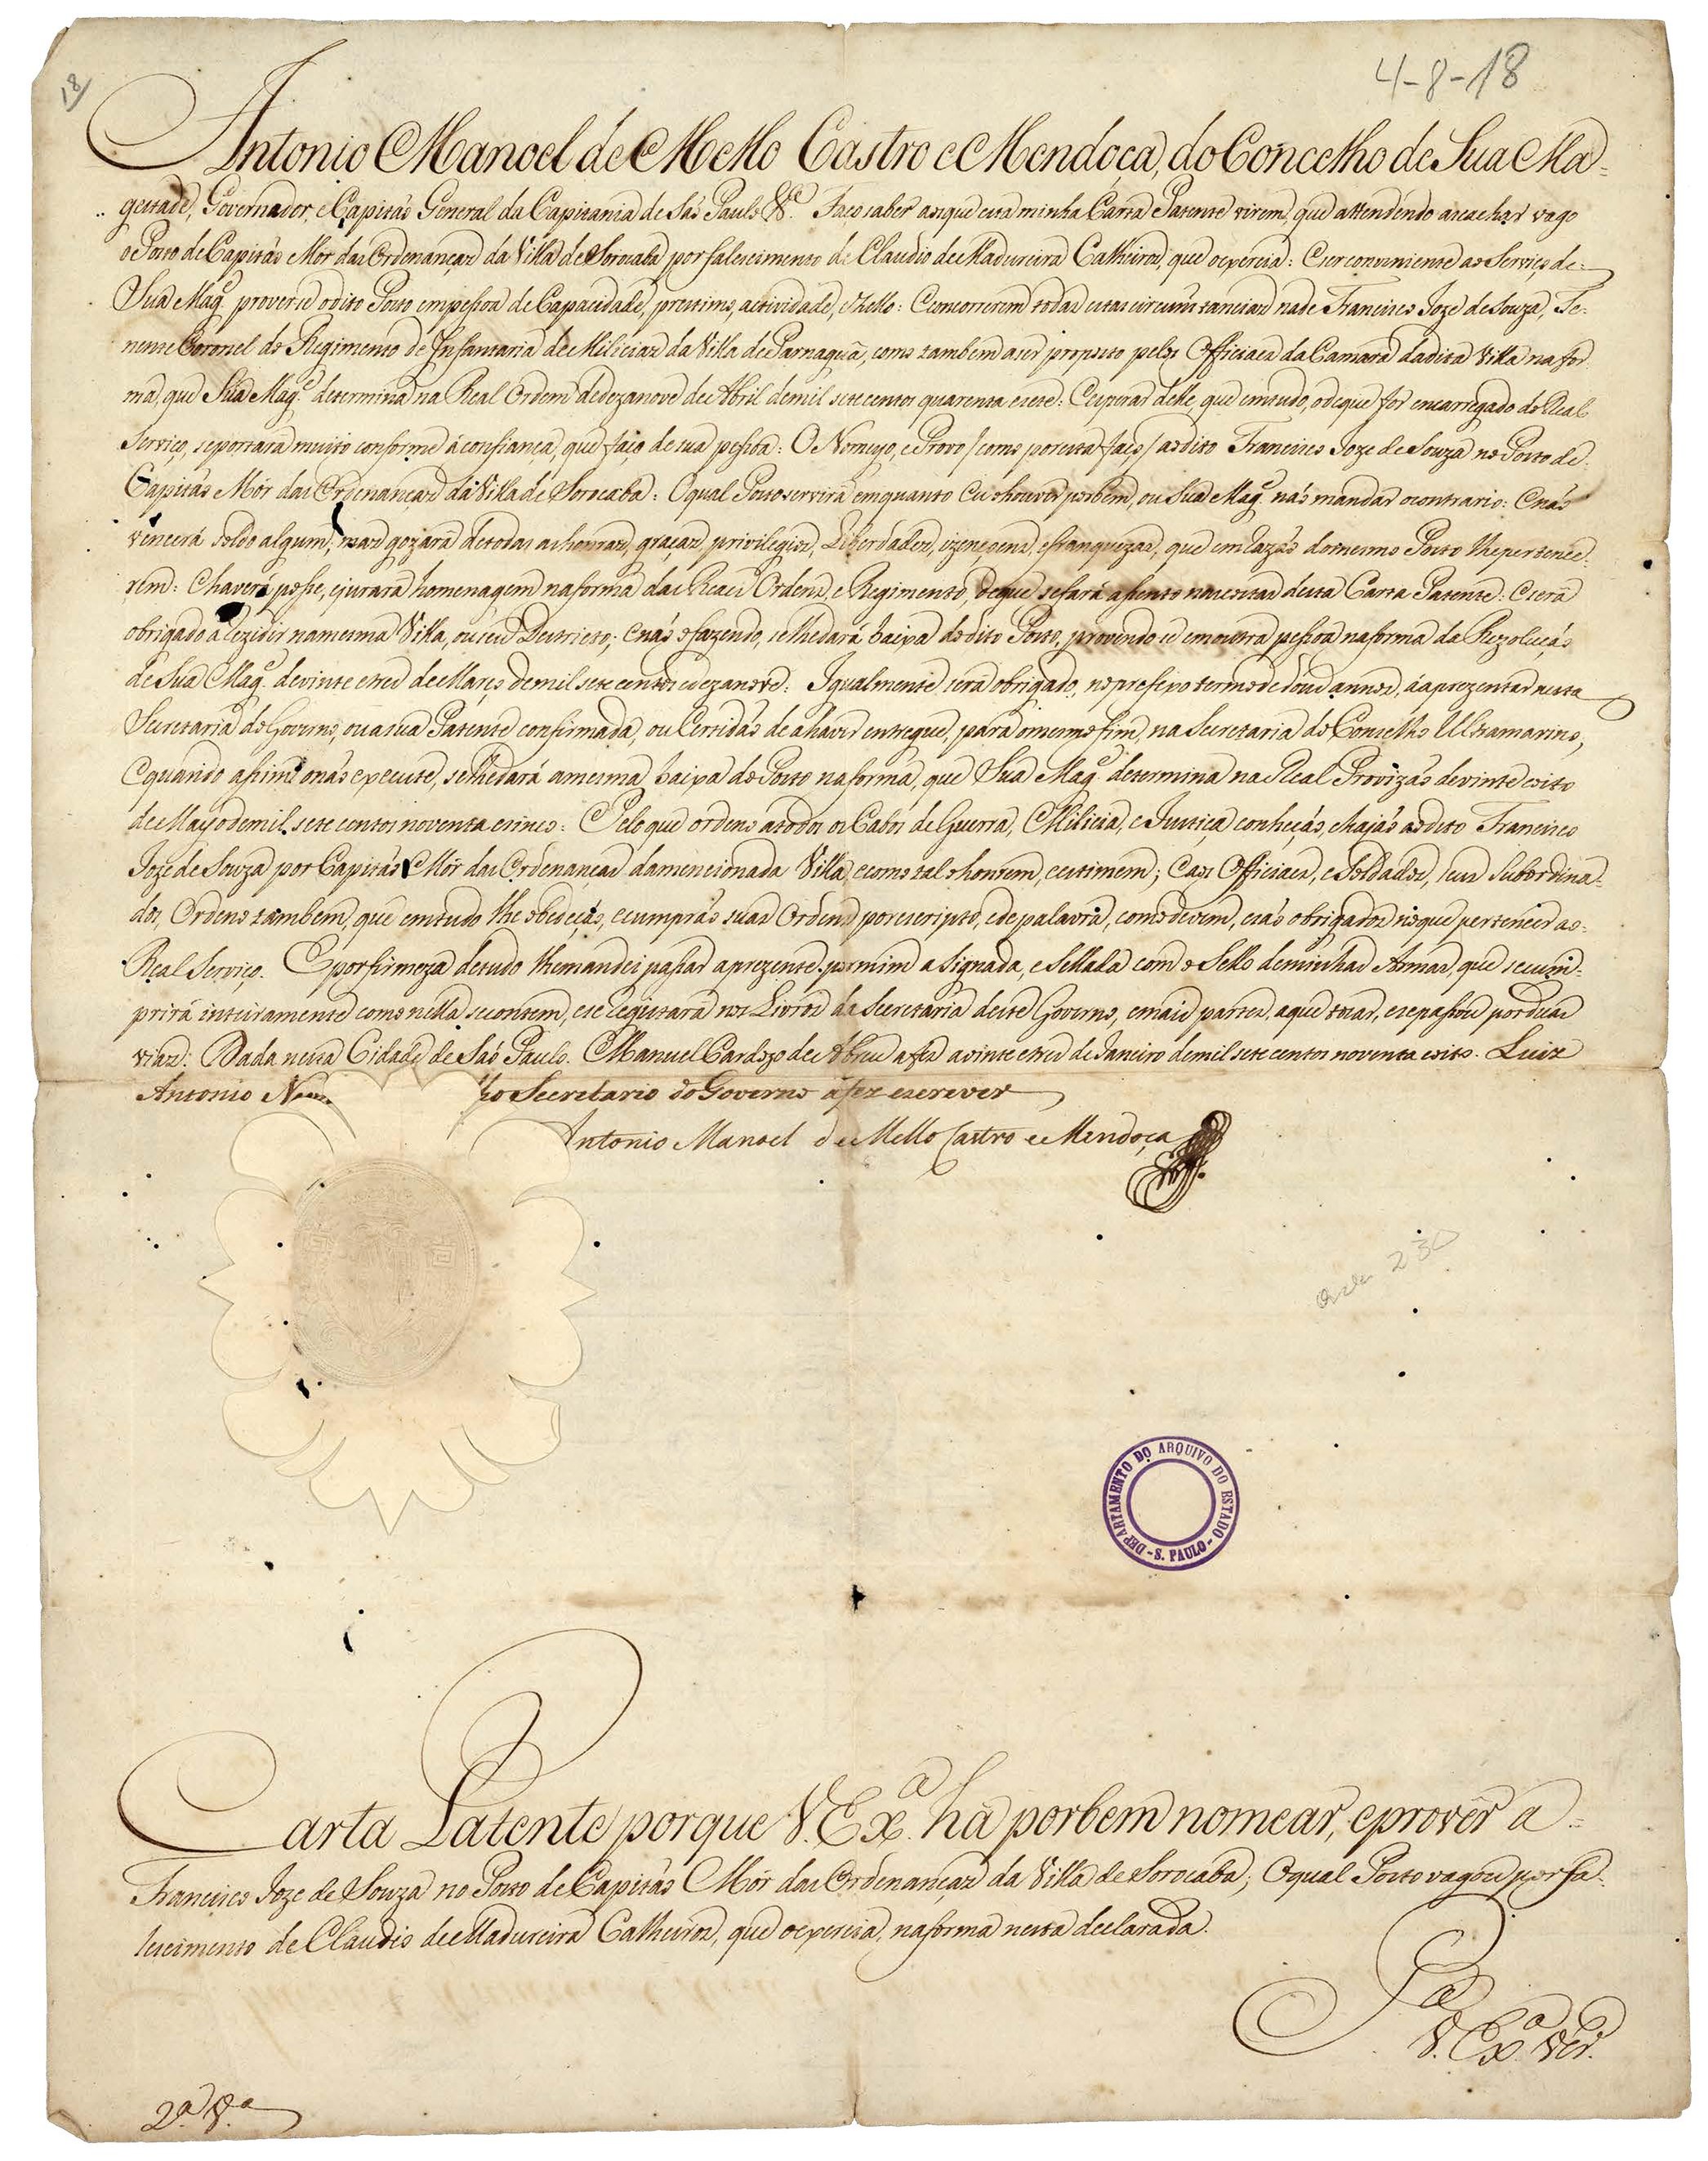 18
4-8-18
Antonio Manoel de Mello Castro e Mendoça, do Concelho de Sua Ma-
gestade, Governador, e Capitaõ General da Capitania de Saõ Paulo &.ª Faço saber aos que esta minha Carta Patente virem, que attendendo a se achar vago
o Posto de Capitaõ Mór das Ordenanças da Villa de Sorocaba por falescimento de Claudio de Madureira Calheiros, que o exercia: E ser conveniente ao Serviço de-
Sua Mag.e prover-se o dito Posto em pessoa de Capacidade, prestimo, actividade, e zello: E concorrerem todas estas circunstancias na de Francisco Joze de Souza, Te-
nente Coronel do Regimento de Infantaria de Milicias da Villa de Parnaguã, como tambem a ser proposto pelos Officiaes da Camara da dita Villa na for-
ma, que Sua Mag.e determina na Real Ordem de dezanove de Abril de mil sete centos quarenta e sete: E esperar delle, que em tudo, o de que for encarregado do Real
Serviço, se portará muito conforme á confiança, que faço de sua pessoa: O Nomeyo, e Provo /como por esta faço/ ao dito Francisco Joze de Souza no Posto de-
Capitaõ Mór das Ordenanças da Villa de Sorocaba: O qual Posto servirá em quanto Eu o houver por bem, ou Sua Mag.e naõ mandar o contrario: E naõ
vencerá soldo algum, mas gozará de todas as honras, graças, privilegios, Liberdades, izençoens, e franquezas, que em razaõ do mesmo Posto lhe pertence-
rem: E haverá posse, e jurará homenagem na forma das Reaes Ordens, e Regimento, de que se fará assento nas costas desta Carta Patente: E será
obrigado a rezidir na mesma Villa, ou seu Destricto; e naõ o fazendo, se lhe dará baixa do dito Posto, provendo-se em outra pessoa na forma da Rezoluçaõ
de Sua Mag.e de vinte e tres de Março de mil sete centos e dezanove: Igualmente será obrigado, no prefixo termo de dous annos, á aprezentar nesta
Secretaria do Governo, ou a sua Patente confirmada, ou Certidaõ de a haver entregue, para o mesmo fim, na Secretaria do Conselho Ultramarino,
E quando assim o naõ execute, se lhe dará a mesma baixa do Posto na forma, que Sua Mag.e determina na Real Provizaõ de vinte e oito
de Mayo de mil sete centos noventa e sinco: Pelo que ordeno a todos os Cabos de Guerra, Milicia, e Justiça conheçaõ, e hajaõ ao dito Francisco
Joze de Souza por Capitaõ Mór das Ordenanças da mencionada Villa, e como tal o honrem, e estimem; E aos Officiaes, e Soldados, seus Subordina-
dos, Ordeno tambem, que em tudo lhe obedeçaõ, e cumpraõ suas Ordens por escripto, e de palavra, como devem, e saõ obrigados no que pertencer ao-
Real Serviço. E por firmeza de tudo lhe mandei passar a prezente por mim assignada, e sellada com o Sello de minhas Armas, que se cum-
prirá inteiramente como nella se contem, e se registará nos Livros da Secretaria deste Governo, e mais partes, a que tocar, e se passou por duas
vias: Dada nesta Cidade de Saõ Paulo. Manuel Cardozo de Abreu a fez a vinte e tres de Janeiro de mil sete centos noventa e oito. Luiz
Antonio lho Secretario do Governo a fez escrever
Antonio Manoel de Mello Castro e Mendoça
230
DEPARTAMENTO DO ARQUIVO DO ESTADO - S. PAULO -
Carta Patente porque V. Ex.ª há por bem nomear, e provêr a-
Francisco Joze de Souza no Posto de Capitaõ Mór das Ordenanças da Villa de Sorocaba; O qual Posto vagou por fa-
lescimento de Claudio de Madureira Calheiros, que o exercia, na forma nesta declarada.
P.ª
V. Ex.ª Ver.
2.ª V.ª